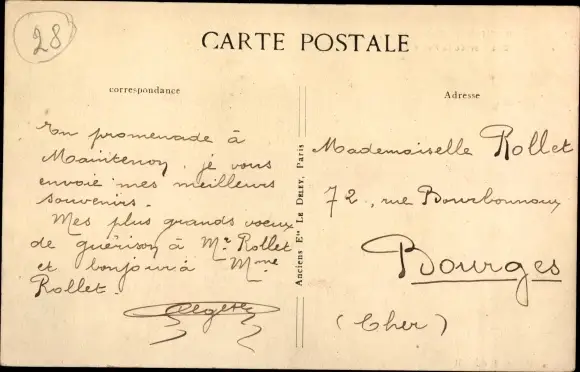 28
CARTE POSTALE
correspondance
Adresse
En promenade à
Maintenon, je vous
envoie mes meilleurs
souvenirs.
Mes plus grands voeux
de guérison à Mr Rollet
et bonjour à Mme
Rollet.
Anciens Ets Le Deley, Paris
Mademoiselle Rollet
72, rue Bourbonnoux
Bourges
(Cher)